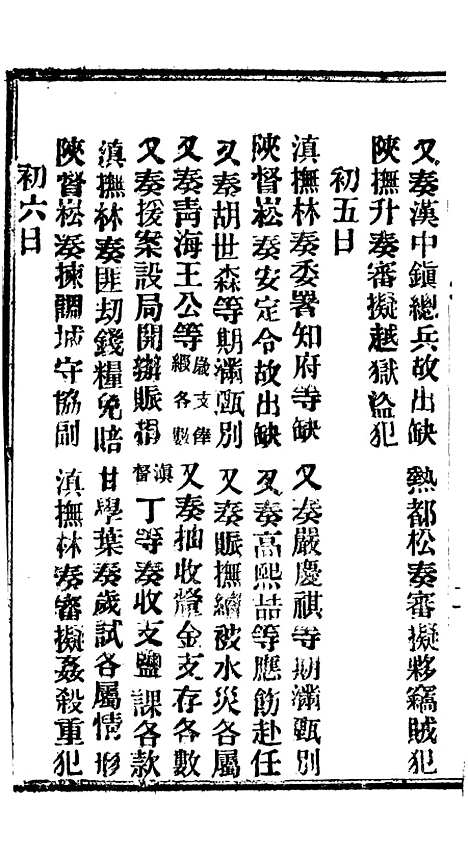 又奏漢中鎮總兵故出缺　熱都松奏審擬夥竊賊犯
陝撫升奏審擬越獄盜犯
初五日
滇撫林奏委署知府等缺　又奏嚴慶祺等期滿甄別
陝督崧奏安定令故出缺　又奏高熙喆等應飭赴任
又奏胡世森等期滿甄別　又奏賑撫續被水災各屬
又奏青海王公等歲支俸緞各數　又奏抽收釐金支存各數
又奏援案設局開辦賑捐　滇督丁等奏收支鹽課各款
滇撫林奏匪刧錢糧免賠　甘學葉奏歲試各屬情形
陝督崧奏揀調城守協副　滇撫林奏審擬姦殺重犯
初六日